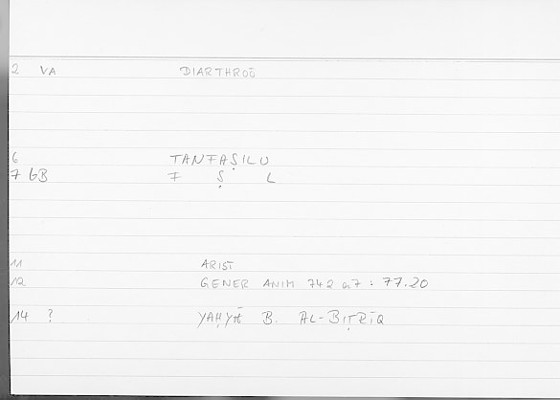 2 VA DIARTHROŌ
6 TANFAṢILU
7 GB F Ṣ L
11 ARIST
12 GENER ANIM 742 a7 : 77.20
14 ? YAḤYĀ B. AL-BIṬRĪQ